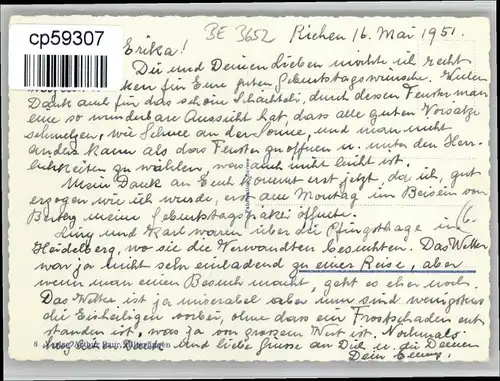 cp59307
BE 3652 Riehen 16. Mai 1951.
Erika!
Du und Deinen Lieben möchte ich recht
für Eure guten Geburtstagswünsche. Vielen
Dank auch für das schöne Schächteli, durch dessen Fenster man
eine so wunderbare Aussicht hat, dass alle guten Vorsätze
schmelzen, wie Schnee an der Sonne, und man nicht
anders kann als das Fenster zu öffnen u. unter den Herr-
lichkeiten zu wählen, was auch nicht leicht ist.
Mein Dank an Euch kommt erst jetzt, da ich, gut
erzogen wie ich wurde, erst am Montag im Beisein von
meine Geburtstagspakete öffnete.
und Karl waren über die Pfingsttage in
Heidelberg, wo sie die Verwandten besuchten. Das Wetter
war ja nicht sehr einladend zu einer Reise, aber
wenn man einen Besuch macht, geht es eher noch.
Das Wetter ist ja miserabel aber nun sind wenigstens
die Eisheiligen vorbei, ohne dass ein Frostschaden ent-
standen ist, was ja von grossem Wert ist. Nochmals
herzlichen Dank und liebe Grüsse an Dich u. die Deinen
Dein